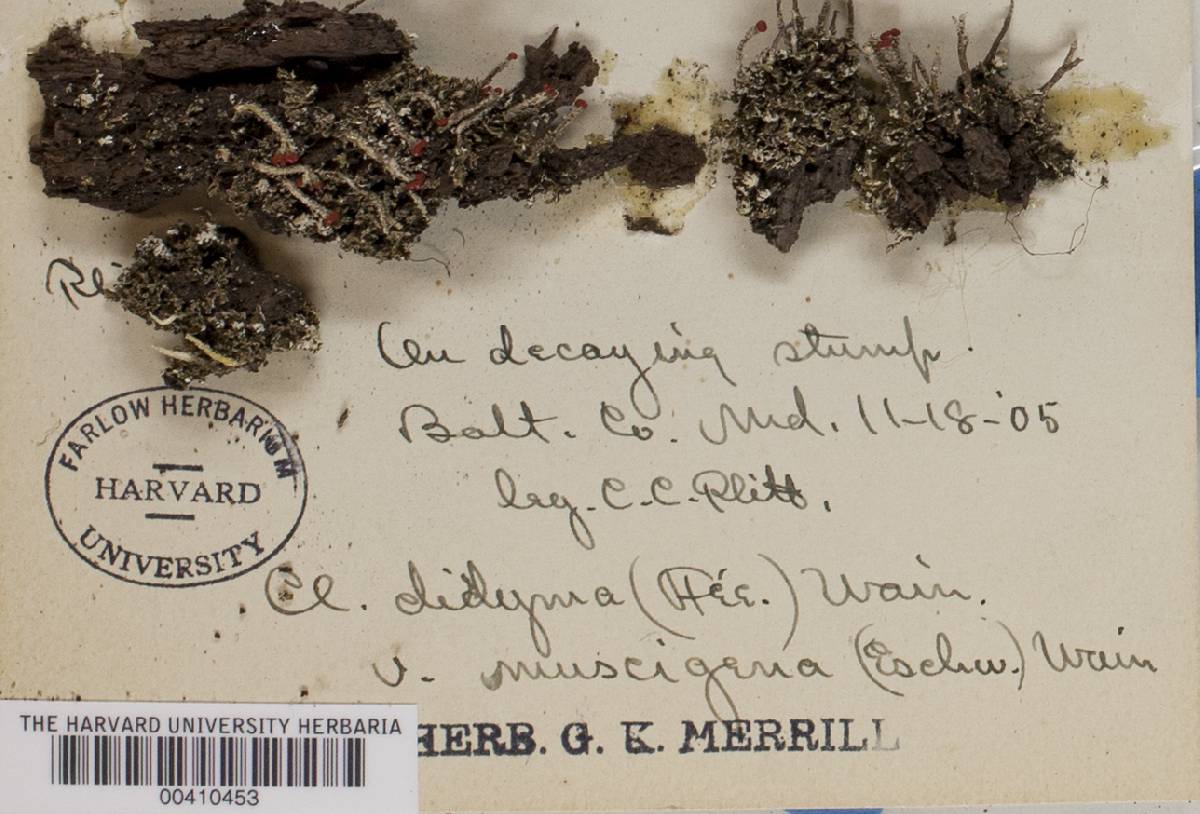 On decaying stump.
Balt. Co. Md. 11-18-'05
leg. C.C. Plitt.
FARLOW HERBARIUM
HARVARD
UNIVERSITY
Cl. didyma (Fée.) Wain.
v. muscigena (Eschw.) Wain
HERB. G. K. MERRILL
THE HARVARD UNIVERSITY HERBARIA
00410453